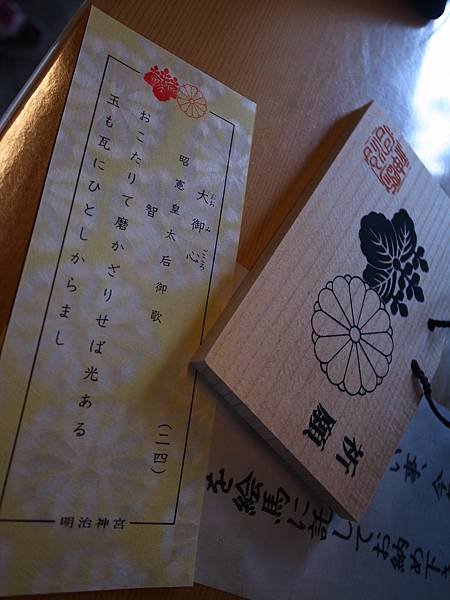 大御心
おおみごころ
昭憲皇太后御歌
智
おこたりて磨かざりせば光ある
玉も瓦にひとしからまし
(二四)
明治神宮
祈願
を絵馬に託してお納め下